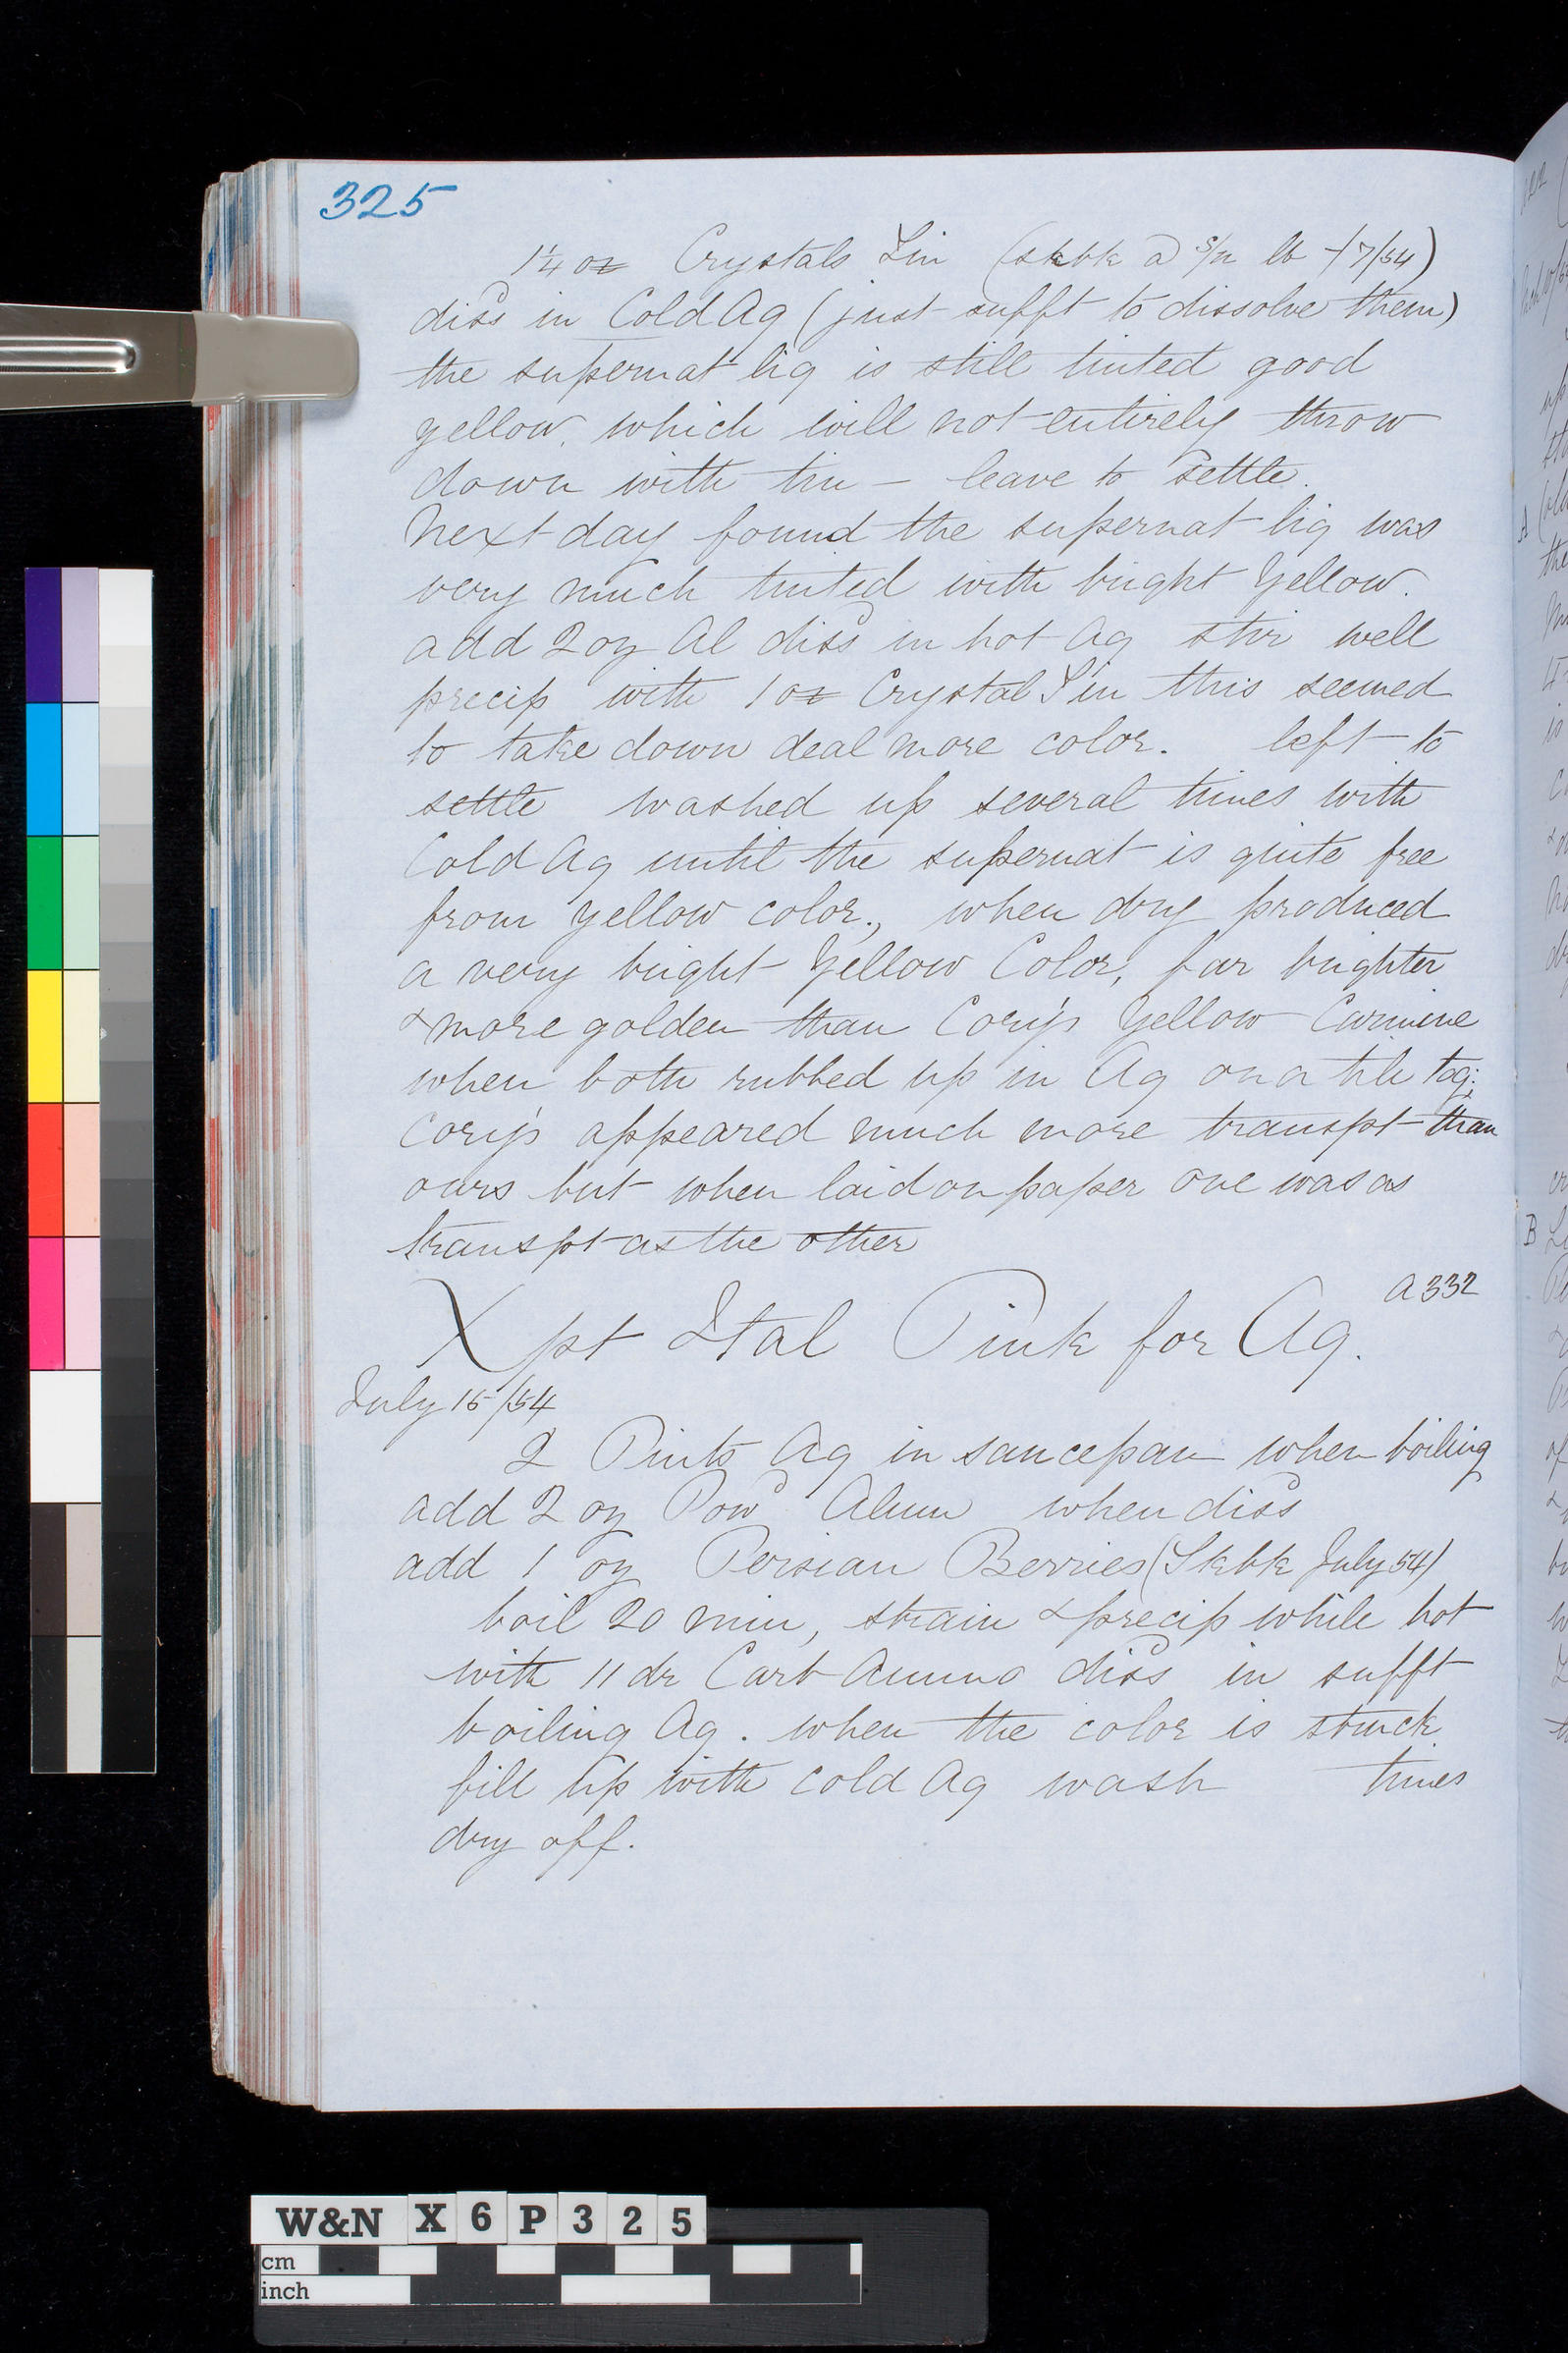 325
1¼ oz Crystals Tin (skbk a s/n lb 7/54)
diss^d in Cold Aq (just sufft to dissolve them)
the supernat liq is still tinted good
yellow. which will not entirely throw
down with tin – leave to settle.
Next day found the supernat liq was
very much tinted with bright Yellow.
add 2 oz Al diss^d in hot Aq stir well
precip with 1 oz Crystal Tin this seemed
to take down deal more color. left to
settle washed up several times with
Cold Aq until the supernat is quite free
from yellow color, when dry produced
a very bright Yellow Color, far brighter
& more golden than Cory's Yellow Carmine
when both rubbed up in Aq on a tile tog:
Cory's appeared much more transpt than
ours but when laid on paper one was as
transpt as the other
A 332
Xpt Ital Pink for Aq.
July 15/54
2 Pints Aq in saucepan when boiling
add 2 oz Pow^d Alum when diss^d
add 1 oz Persian Berries (Skbk July 54)
boil 20 min, strain & precip while hot
with 11 dr Carb Ammo diss^d in sufft
boiling Aq. when the color is struck
fill up with cold Aq wash times
dry off.
W&N X 6 P 3 2 5
cm
inch